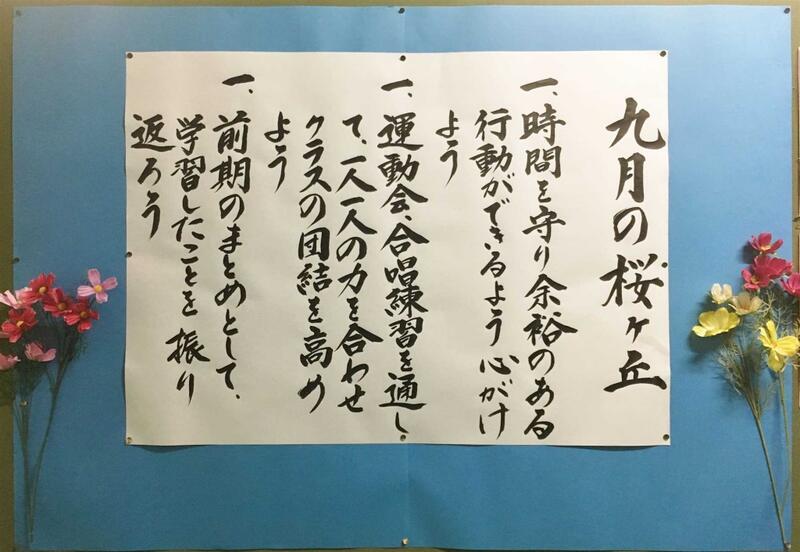 九月の桜ヶ丘
一、時間を守り余裕のある
行動ができるよう心がけ
よう
一、運動会、合唱練習を通し
て、一人一人の力を合わせ
クラスの団結を高め
よう
一、前期のまとめとして、
学習したことを振り
返ろう